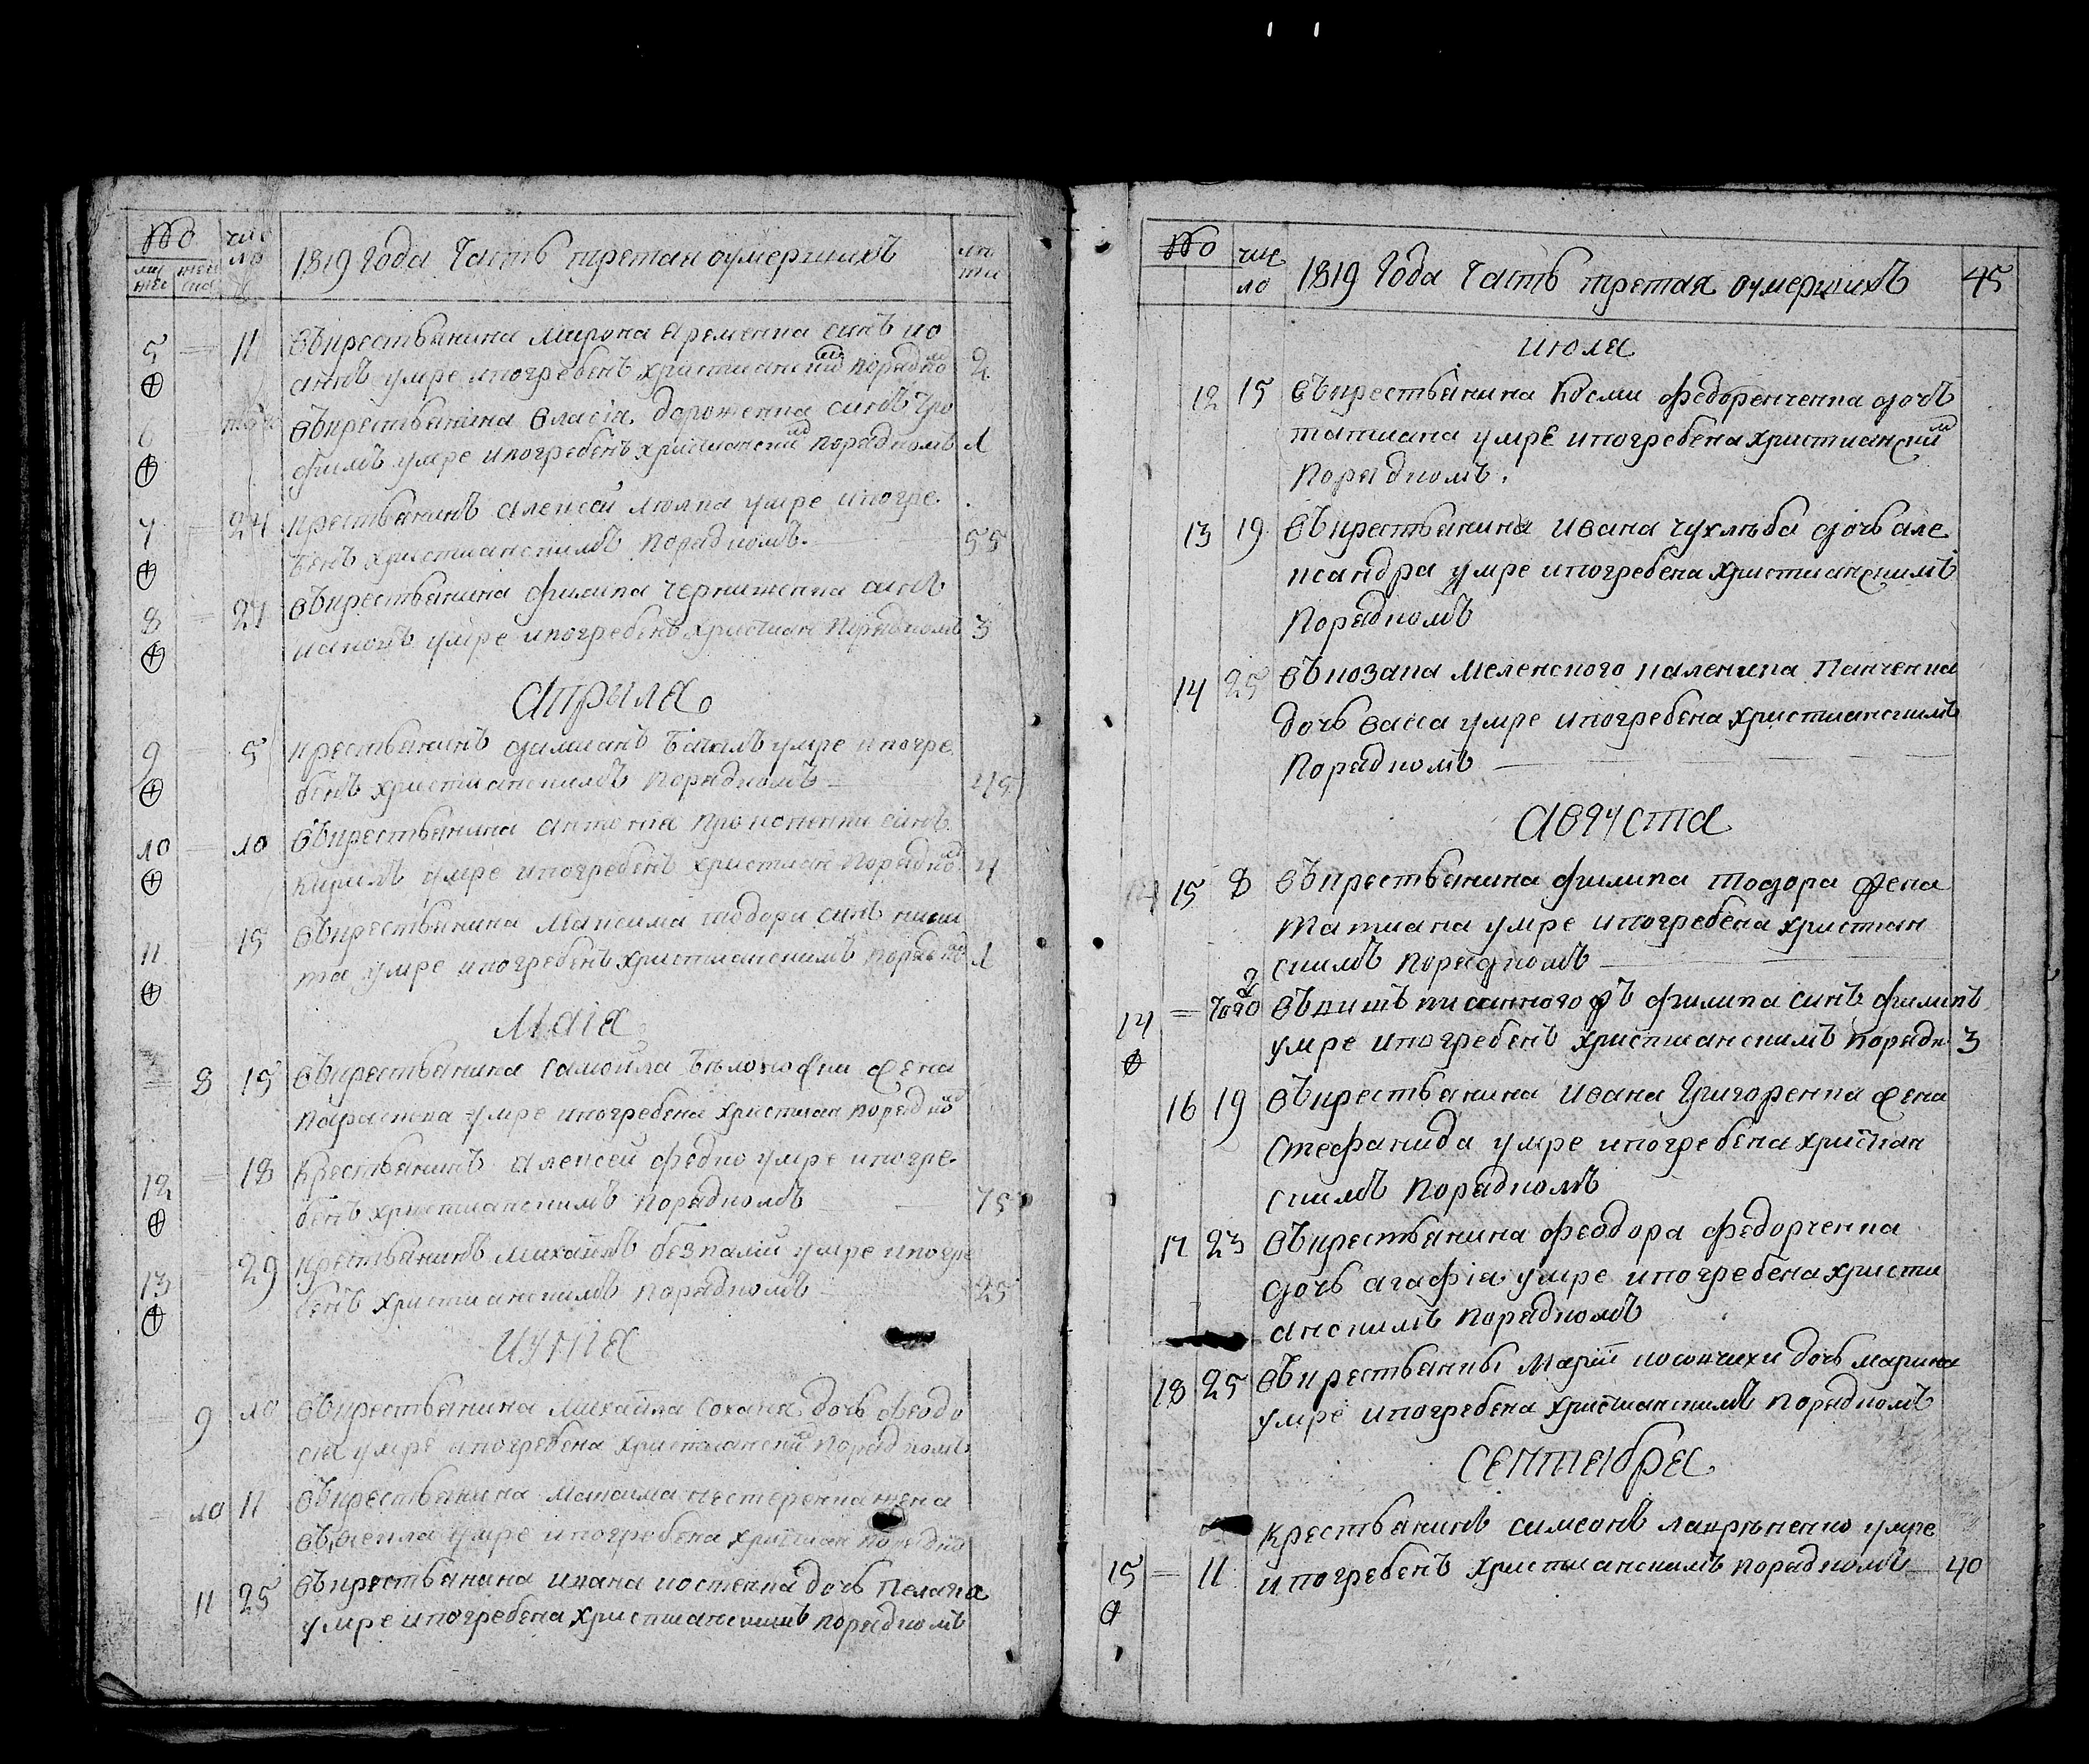 №
чис
ло
муж
ска
жен
ска
1819 года Часть третая оумершихъ
лѣ
та
5 = 11 Въ крестьянина Мирона Яременка синъ ио
аннъ умре и погребенъ христиански порядко 2
6 Въ крестьянина Власія Дороженка синъ Тро
фимъ умре и погребенъ христиански порядкомъ 1
7 = 24 крестьянинъ Алексей Люлка умре и погре
бенъ христианскимъ порядкомъ. 55
8 = 27 Въ крестьянина Филипа Чернишенка синъ
умре и погребенъ христиан порядкомъ 3
Априля
9 = 5 крестьянинъ Дамианъ умре и погре
бенъ христианскимъ порядкомъ 45
10 10 Въ крестьянина Антонія синъ
Кирилъ умре и погребенъ христиан порядко 4
11 15 Въ крестьянина Максима Тодори синъ ники
та умре и погребенъ христианскимъ порядко 1
Маія
= 8 15 Въ крестьянина Самойла жена
Параскева умре и погребена христиан порядко
12 = 18 Крестьянинъ Алексей Федко умре и погре
бенъ христианскимъ порядкомъ 75
13 29 крестьянинъ Михаилъ безпалий умре и погре
бенъ христианскимъ порядкомъ 25
Иуния
= 9 10 Въ крестьянина Михайла Сохана дочь Феодо
сия умре и погребена христиански порядкомъ
= 10 11 Въ крестьянина Максима Нестеренка жена
умре и погребена христиан порядко
11 25 Въ крестьянина Ивана Костенка дочь Пелагия
умре и погребена христианскимъ порядкомъ
№
чис
ло
1819 года Часть третая оумершихъ 45
Июля
12 15 Въ крестьянина Косми Федоренченка дочъ
татиана умре и погребена христиански
порядкомъ.
13 19 Въ крестьянина Ивана Чухлѣба дочь але
ксандра умре и погребена христианскимъ
порядкомъ
14 25 Въ козака Меленского каленика Панченка
дочь васса умре и погребена христианскимъ
порядкомъ
Августа
15 8 Въ крестьянина Филипа Тодора жена
Татиана умре и погребена христиан
скимъ порядкомъ
14 = того Въ вишъ писанного жъ филипа синъ филипъ
умре и погребенъ христианскимъ порядк 3
16 19 Въ крестьянина Ивана Григоренка жена
Стефанида умре и погребена христиан
скимъ порядкомъ
17 23 Въ крестьянина феодора Федорченка
дочь агафія умре и погребена христи
анскимъ порядкомъ
18 25 Въ крестьянки Марии дочь марина
умре и погребена христианскимъ порядкомъ
Сентября
Крестьянинъ Симеонъ умре
15 = 11 и погребенъ христианскимъ порядкомъ 40